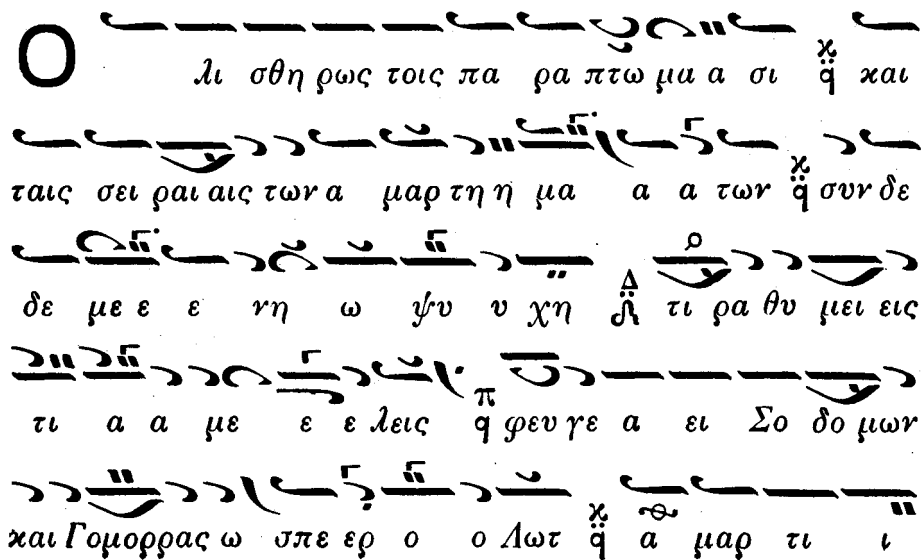 Ο λι σθη ρως τοις πα ρα πτω μα α σι ϰ q̈ και
ταις σει ραι αις των α μαρ τη η μα α α των ϰ q̈ συν δε
δε με ε ε νη ω ψυ υ χη Δ τι ρα θυ μει εις
τι α α με ε ε λεις π q φευ γε α ει Σο δο μων
και Γομορρας ω σπε ερ ο ο Λωτ ϰ q̈ α μαρ τι ι